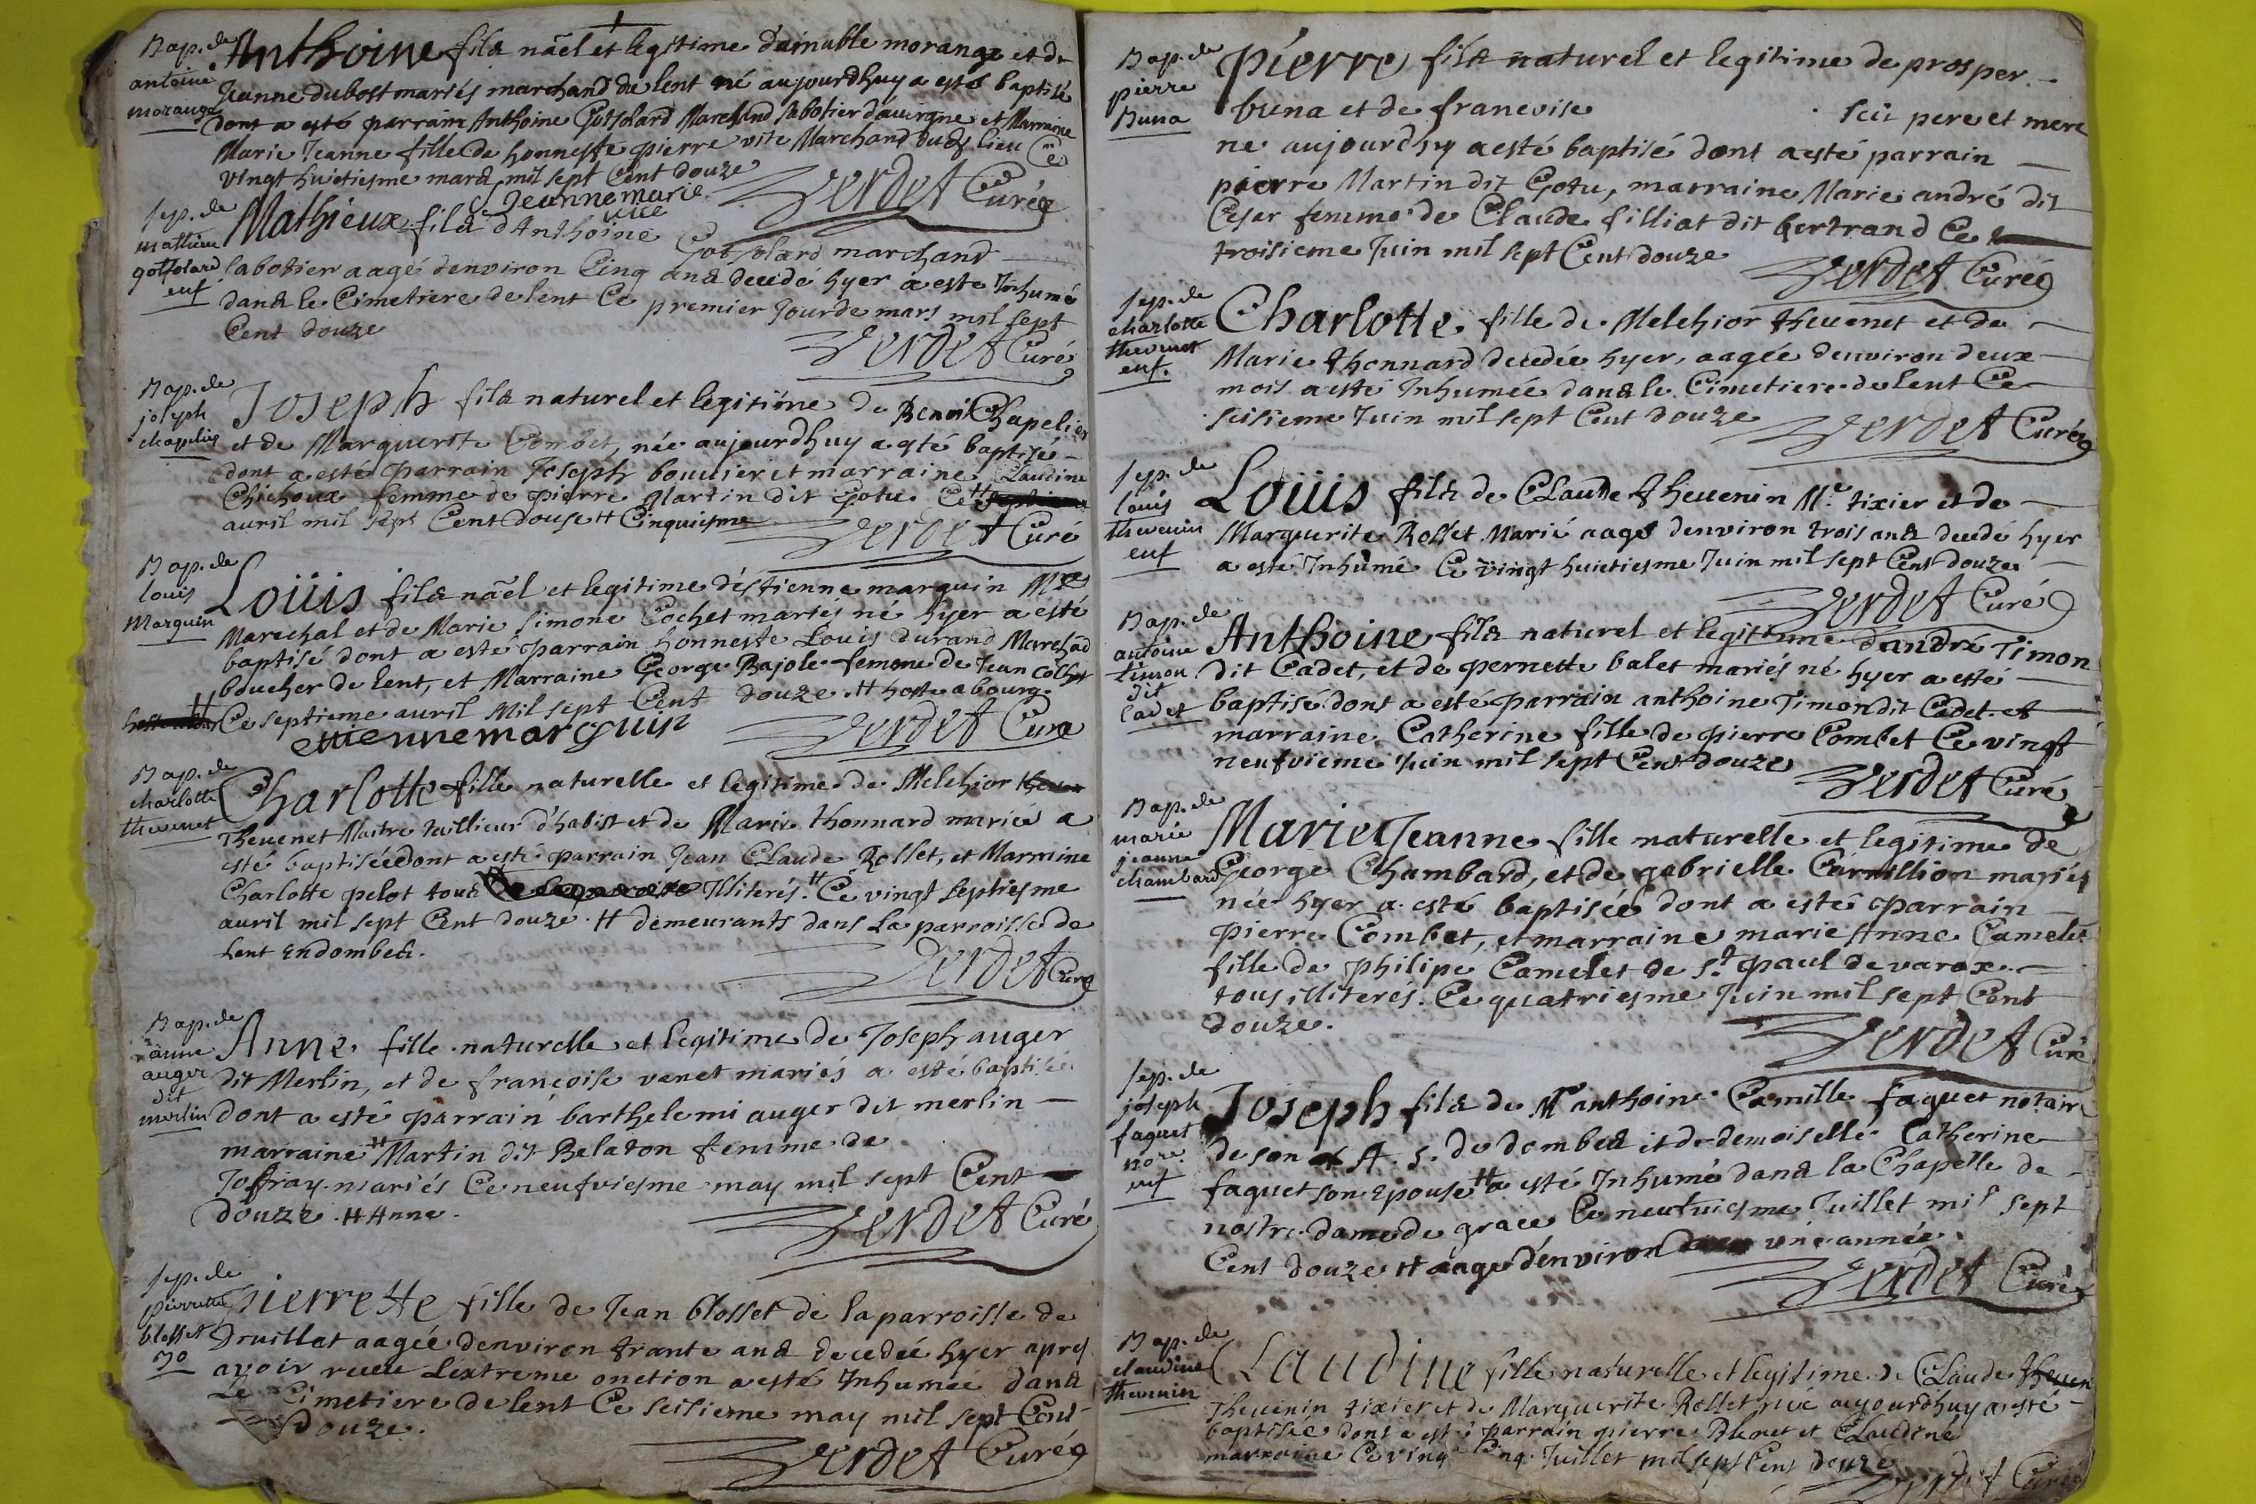 Bap. de
antoine
morange
Anthoine fils nãel et legitime d'aimable morange et de
Jeanne dubost mariés marchand de lent né aujourdhuy a esté baptisé
dont a esté parrain Anthoine Marchand sabotier dauvirgne et Marraine
Marie Jeanne fille de honneste pierre vite Marchand dudt lieu Ce
vingt huictiesme mars mil sept Cent douze
Verdet Curé
sep. de
mathieu
enf
& Jeanne marie
vite
Mathieux fils d'Anthoine marchand
sabotier aagé denviron Cinq ans decedé hyer a este Inhumé
dans le Cimetiere de lent Ce premier Jour de mars mil sept
Cent douze
Verdet Curé
Bap. de
joseph
chapelier
Joseph fils naturel et legitime de Benoit Chapelier
et de Marguerite Combet, née aujourdhuy a esté baptisé
dont a esté parrain Joseph bouvier et marraine Claudine
Chichoux femme de pierre Martin dit Gotu. Ce #
auril mil sept Cent Douse # Cinquiesme
Verdet Curé
Bap. de
louis
Marquin
Loüis fils nãel et legitime d'estienne marquin Me
Marechal et de Marie Simone Cochet mariés né hyer a esté
baptisé dont a esté parrain honneste Louis durand Marchad
boucher de lent, et Marraine George Bajole femme de Jean Cochet
# Ce septieme auril Mil sept Cent douze. # hoste a bourg.
etiennemarquin
Verdet Curé
Bap. de
charlotte
thevenet
Charlotte fille naturelle et legitime de Melchior
Theuenet Maitre taillieur d'habist et de Marie thonnard mariée a
esté baptisée dont a esté parrain Jean Claude Rollet, et Marraine
Charlotte pelot tous Illiterés. # Ce vingt septiesme
auril mil sept Cent douze. # demeurants dans La parroisse de
Lent Endombes.
Verdet Curé
Bap. de
anne
auger
dit
merlin
Anne fille naturelle et legitime de Joseph auger
dit Merlin, et de françoise venet mariés a esté baptisée
dont a esté parrain barthelemi auger dit merlin
marraine # Martin dit Belaton femme de
Joffray mariés Ce neufviesme may mil sept Cent
douze. # Anne.
Verdet Curé
sep. de
pierrette
blosset
30
Pierrette fille de Jean blosset de la parroisse de
Druillat aagée denviron trante ans decedée hyer apres
avoir receu Lextreme onction a esté Inhumée dans
Le Cimetiere de lent Ce seisieme may mil sept Cent
Douze.
Verdet Curé
Bap. de
pierre
Buna
Pierre fils naturel et legitime de prosper
buna et de francoise ses pere et mere
ne aujourdhy a esté baptisé dont a esté parrain
pierre Martin dit Gotu, marraine Marie andré dit
Cesar femme de Claude filliat dit bertrand Ce
troisieme Juin mil sept Cent douze
Verdet Curé
sep. de
charlotte
thevenet
enf.
Charlotte fille de Melchior theuenet et de
Marie thonnard decedée hyer, aagée denviron deux
mois a esté Inhumée dans le Cimetiere de lent Ce
seisieme Juin mil sept Cent douze
Verdet Curé
sep. de
louis
thevenin
enf
Loüis fils de Claude theuenin Me tixier et de
Marguerite Rollet Marié aagé denviron trois ans decedé hyer
a esté Inhumé Ce vingt huictiesme Juin mil sept Cent douze
Verdet Curé
Bap. de
antoine
timon
dit
Cadet
Anthoine fils naturel et legittime d'andré Timon
dit Cadet, et de pernette balet mariés né hyer a esté
baptisé dont a esté parrain anthoine Timon dit Cadet et
marraine Catherine fille de pierre Combet Ce vingt
neufvieme Juin mil sept Cent douze
Verdet Curé
Bap. de
marie
jeanne
chambard
Marie Jeanne fille naturelle et legitime de
George Chambard, et de gabrielle mariés
née hyer a esté baptisée dont a esté parrain
pierre Combet, et marraine marie Anne Camelet
fille de philipe Camelet de St paul de varax
tous illiterés. Ce quatriesme Juin mil sept Cent
douze.
Verdet Curé
sep. de
joseph
faguet
nore
enf
Joseph fils de Me anthoine Camille faguet notaire
de son A. S. de dombes et de demoiselle Catherine
faguet son Epouse # a esté Inhumé dans la Chapelle de
nostre dame de grace Ce neufuiesme Juillet mil sept
Cent douze # aage d'environ une année.
Verdet Curé
Bap. de
claudine
thevenin
Claudine fille naturelle et legitime de Claude
Theuenin tixier et de Marguerite Rollet née aujourdhuy a esté
baptisée dont a esté parrain pierre et Claudine
marraine Ce vingt Cinq Juillet mil sept Cent Douze
Verdet Curé